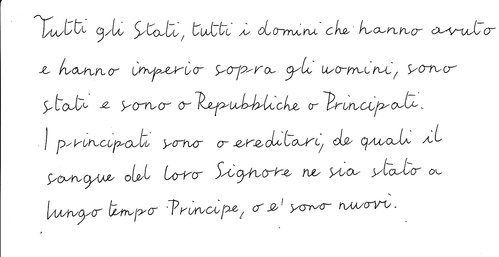 Tutti gli Stati, tutti i domini che hanno avuto
e hanno imperio sopra gli uomini, sono
stati e sono o Repubbliche o Principati.
I principati sono o ereditari, de quali il
sangue del loro Signore ne sia stato a
lungo tempo Principe, o e' sono nuovi.